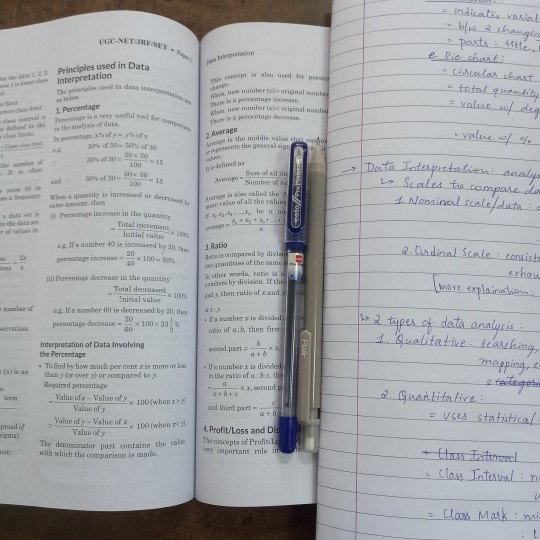 UGC-NET/JRF/SET • Paper
Principles used in Data
Interpretation
The principles used in data interpretation are
as below
1. Percentage
Percentage is a very useful tool for comparison
in the analysis of data.
In percentage, x% of y = y% of x
e.g. 30% of 50 = 50% of 30
30% of 50 = 30 × 50 / 100 = 15
and 50% of 30 = 50 × 30 / 100 = 15
When a quantity is increased or decreased by
same amount, then
(i) Percentage increase in the quantity
= Total increment / Initial value × 100%
e.g. If a number 40 is increased by 20, then
percentage increase = 20 / 40 × 100 = 50%
(ii) Percentage decrease in the quantity
= Total decreased / Initial value × 100%
e.g. If a number 60 is decreased by 20, then
percentage decrease = 20 / 60 × 100 = 33 1/3 %
Interpretation of Data Involving
the Percentage
• To find by how much per cent x is more or less
than y (or over y) or compared to y.
Required percentage
= Value of x - Value of y / Value of y × 100 (when x > y)
= Value of y - Value of x / Value of y × 100 (when x < y)
The denominator part contains the value
with which the comparison is made.
Data Interpretation
This concept is also used for
change.
When, new number (x) > original number
There is a percentage increase.
When, new number (x) < original number
There is a percentage decrease.
2. Average
Average is the middle value that
represents the general
values.
It is defined as
Average = Sum of all / Number of
Average is also called the
mean value of all the values
be n
average =
3. Ratio
Ratio is compared by
two quantities of the same
In other words, ratio is
numbers by division. If the
and y, then ratio of x and y
x : y.
• If a number x is divided
ratio of a : b, then first
second part = b / a + b ×
• If a number x is divided
in the ratio of a : b : c,
= a / a + b + c × x, second
and third part = c / a + b
4. Profit/Loss and Dis
The concepts of Profit/Lo
very important role in
cello
Flair
= indicates
= b/w 2
= parts = title,
Pie chart:
= circular chart
= total quantity
= value w/ deg
= value w/ %
→ Data Interpretation: analys
↳ Scales to compare da
1. Nominal scale/data:
2. Ordinal Scale: consist
exhau
[more explaination:
↳ 2 types of data analysis:
1. Qualitative: searching,
mapping,
2. Quantitative:
= uses statistical
Class Interval
= Class Interval:
= Class Mark: